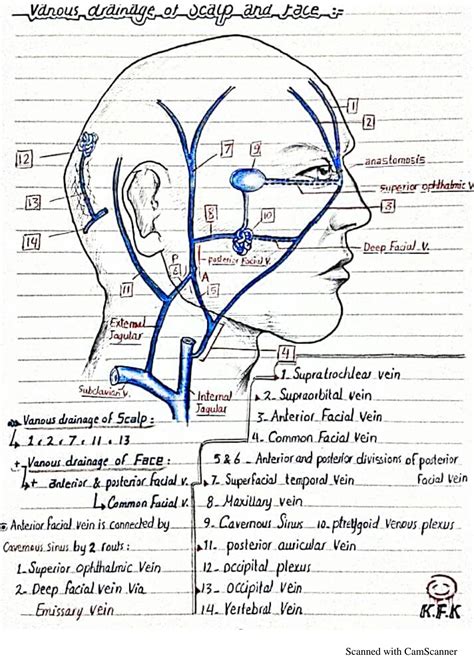 Vanous drainage of Scalp and Face :-
1
2
anastomosis
superior ophthalmic V
3
Deep Facial V.
7
9
8
10
posterior Facial V.
P
6
A
5
12
13
14
11
External
Jugular
4
Subclavian V.
Internal
Jugular
Vanous drainage of Scalp :
1, 2, 7, 11, 13
+ Vanous drainage of Face :
+ anterior & posterior facial v.
Common Facial v.
Anterior Facial vein is connected by
Cavernous Sinus by 2 routs :
1_ Superior Ophthalmic Vein
2_ Deep Facial Vein Via
Emissary Vein
1_ Supratrochlear vein
2_ Supraorbital vein
3_ Anterior Facial Vein
4_ Common Facial Vein
5 & 6 _ Anterior and posterior divissions of posterior
Facial Vein
7_ Superfacial temporal Vein
8_ Maxillary Vein
9_ Cavernous Sinus 10_ pterygoid Venous plexus
11_ posterior auricular Vein
12_ Occipital plexus
13_ Occipital Vein
14_ Vertebral Vein
K.F.K
Scanned with CamScanner